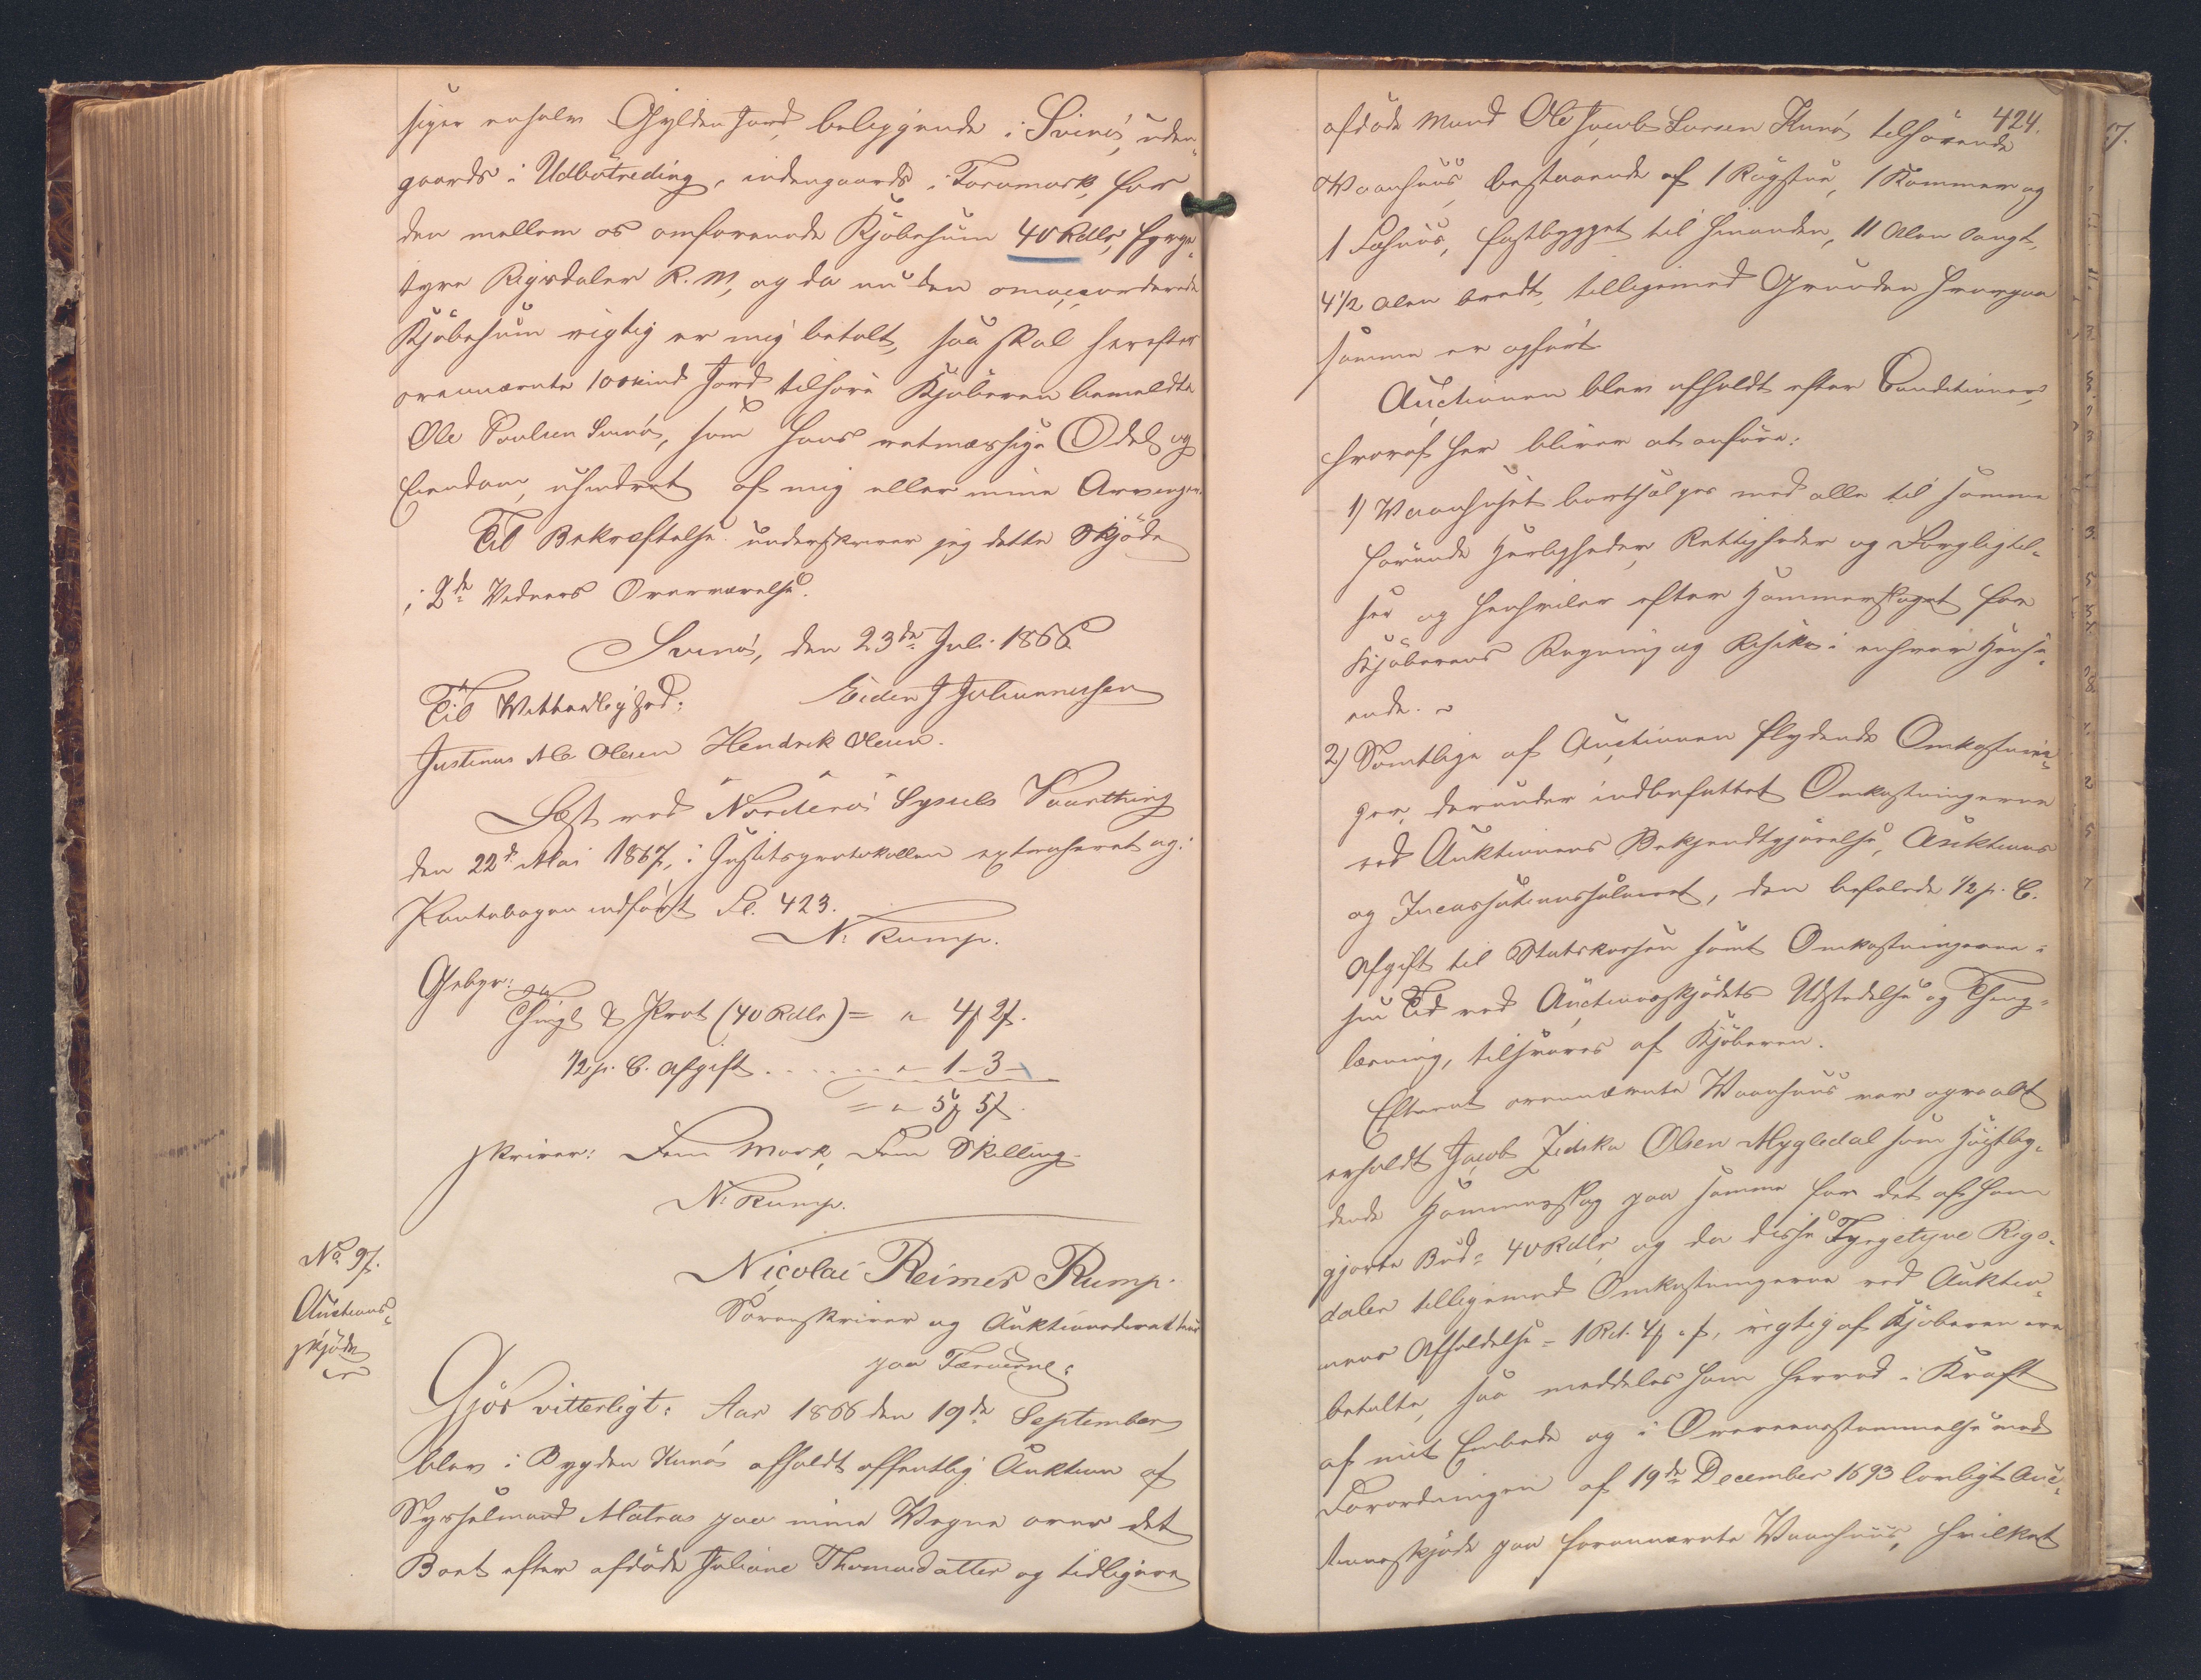 siger enhalv Gylden Jord, beliggende i Svinö, uden¬
gaards i Udbötreding, indengaards i Toromark, for
den mellem os omforenede Kjöbesum 40 Rdlr, fyrge¬
tyve Rigsdaler R. M, og da nu den omaccorderede
Kjöbesum rigtig er mig betalt, saa skal herefter
ovennævnte 10 Skind Jord tilhöre Kjöberen bemeldte
Ole Poulsen Svinö, som hans retmæssige Odel og
Eiendom, uhindret af mig eller mine Arvinger.
Til Bekræftelse underskriver jeg dette Skjöde
i 2de Vidners Overværelse.
Svinö, den 23de Juli 1866
Til Vitterlighed: Eiden J Johannesen
Justinus Ole Olesen Hendrik Olesen.
Læst ved Norderö Syssels Vaarthing
den 22d Mai 1867, i Justitsprotokollen extraheret og i
Pantebogen indfört Fl. 423.
N. Rump.
Gebyr:
Thingl & Prot (40 Rdlr) = " 4 2
1/2 p. C. Afgift . . . . . . " 1 - 3 -
= " 5 5
skriver: Fem Mark, Fem Skilling.
N. Rump.
No 97.
Auctions¬
skjöde
Nicolai Reimer Rump.
Sorenskriver og Auktionsdirecteur
paa Færöerne:
Gjör vitterligt: Aar 1866 den 19de September
blev i Bygden Kunö afholdt offentlig Auktion af
Sysselmand Matras paa mine Vegne over det
Boet efter afdöde Juliane Thomasdatter og tidligere
424.
afdöde Mand Ole Jacob Larsen Kunö tilhörende
Vaanhuus, bestaaende af 1 Rögstue, 1 Kammer og
1 Fæhuus, fastbygget til hinanden, 11 Alen langt,
4 1/2 Alen bredt, tilligemed Grunden hvorpaa
samme er opfört.
Auctionen blev afholdt efter Conditioner,
hvoraf her bliver at anföre:
1) Vaanhuset bortsælges med alle til samme
hörende Herligheder, Rettigheder og Forpligtel¬
ser og henhviler efter Hammerslaget for
Kjöberens Regning og Risiko i enhver Hense¬
ende.
2) Samtlige af Auctionen flydende Omkostnin¬
ger, derunder indbefattet Omkostningerne
ved Auktionens Bekjendtgjörelse, Auktions
og Incassationssalairet, den befalede 1/2 p. C.
Afgift til Statskassen samt Omkostningerne i
sin Tid ved Auctionsskjödets Udstedelse og Thing¬
læsning, tilsvares af Kjöberen.
Efterat ovennævnte Vaanhuus var opraabt
erholdt Jacob Zidska Olsen Mygledal som höistby¬
dende Hammerslag paa samme for det af ham
gjorte Bud: 40 Rdlr, og da disse Fyrgetyve Rigs¬
daler tilligemed Omkostningerne ved Auktio¬
nens Afholdelse = 1 Rd. 4 " , rigtig af Kjöberen ere
betalte, saa meddeles ham herved i Kraft
af mit Embede og i Overeensstemmelse med
Forordningen af 19de December 1693 lovligt Auc¬
tionsskjöde paa forannævnte Vaanhuus, hvilket